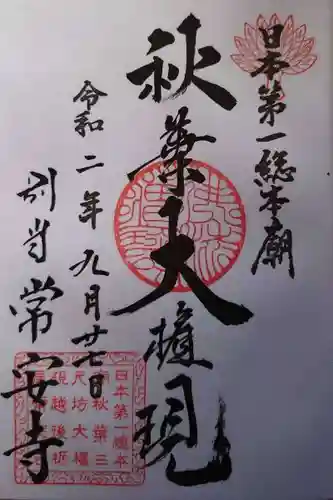 日本第一総本廟
秋葉大権現
令和二年九月廿七日
別当常安寺
日本第一総本
廟秋葉三
尺坊大権
現越後栃